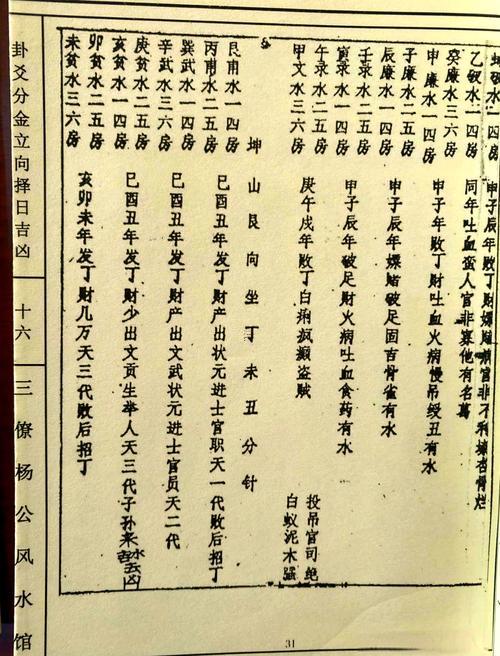 水一四房
乙破水一四房
癸廉水三六房
申廉水一四房
子廉水二五房
辰廉水一四房
壬录水二五房
寅录水一四房
午录水二五房
甲文水三六房
甲子辰年败丁财嫖赌官非不利骨烂
同年吐血蛮人官非寡他有名
甲子年败丁财吐血火病慢吊绶丑有水
甲子辰年嫖赌破足固吉骨雀有水
甲子辰年破足财火病吐血食药有水
庚午戌年败丁白痢疯癫盗贼
投吊官司绝
白蚁泥木强
坤山艮向坐丁未丑分针
艮甫水一四房
丙甫水二五房
巽武水一四房
辛武水三六房
庚贫水二五房
亥贫水一四房
卯贫水二五房
未贫水三六房
巳酉丑年发丁财产出状元进士官职天一代败后招丁
巳酉丑年发丁财产出文武状元进士官员天二代
巳酉丑年发丁财少出文贡生举人天三代子孙来水去吉凶
亥卯未年发丁财几万天三代败后招丁
卦爻分金立向择日吉凶
十六
三僚杨公风水馆
31